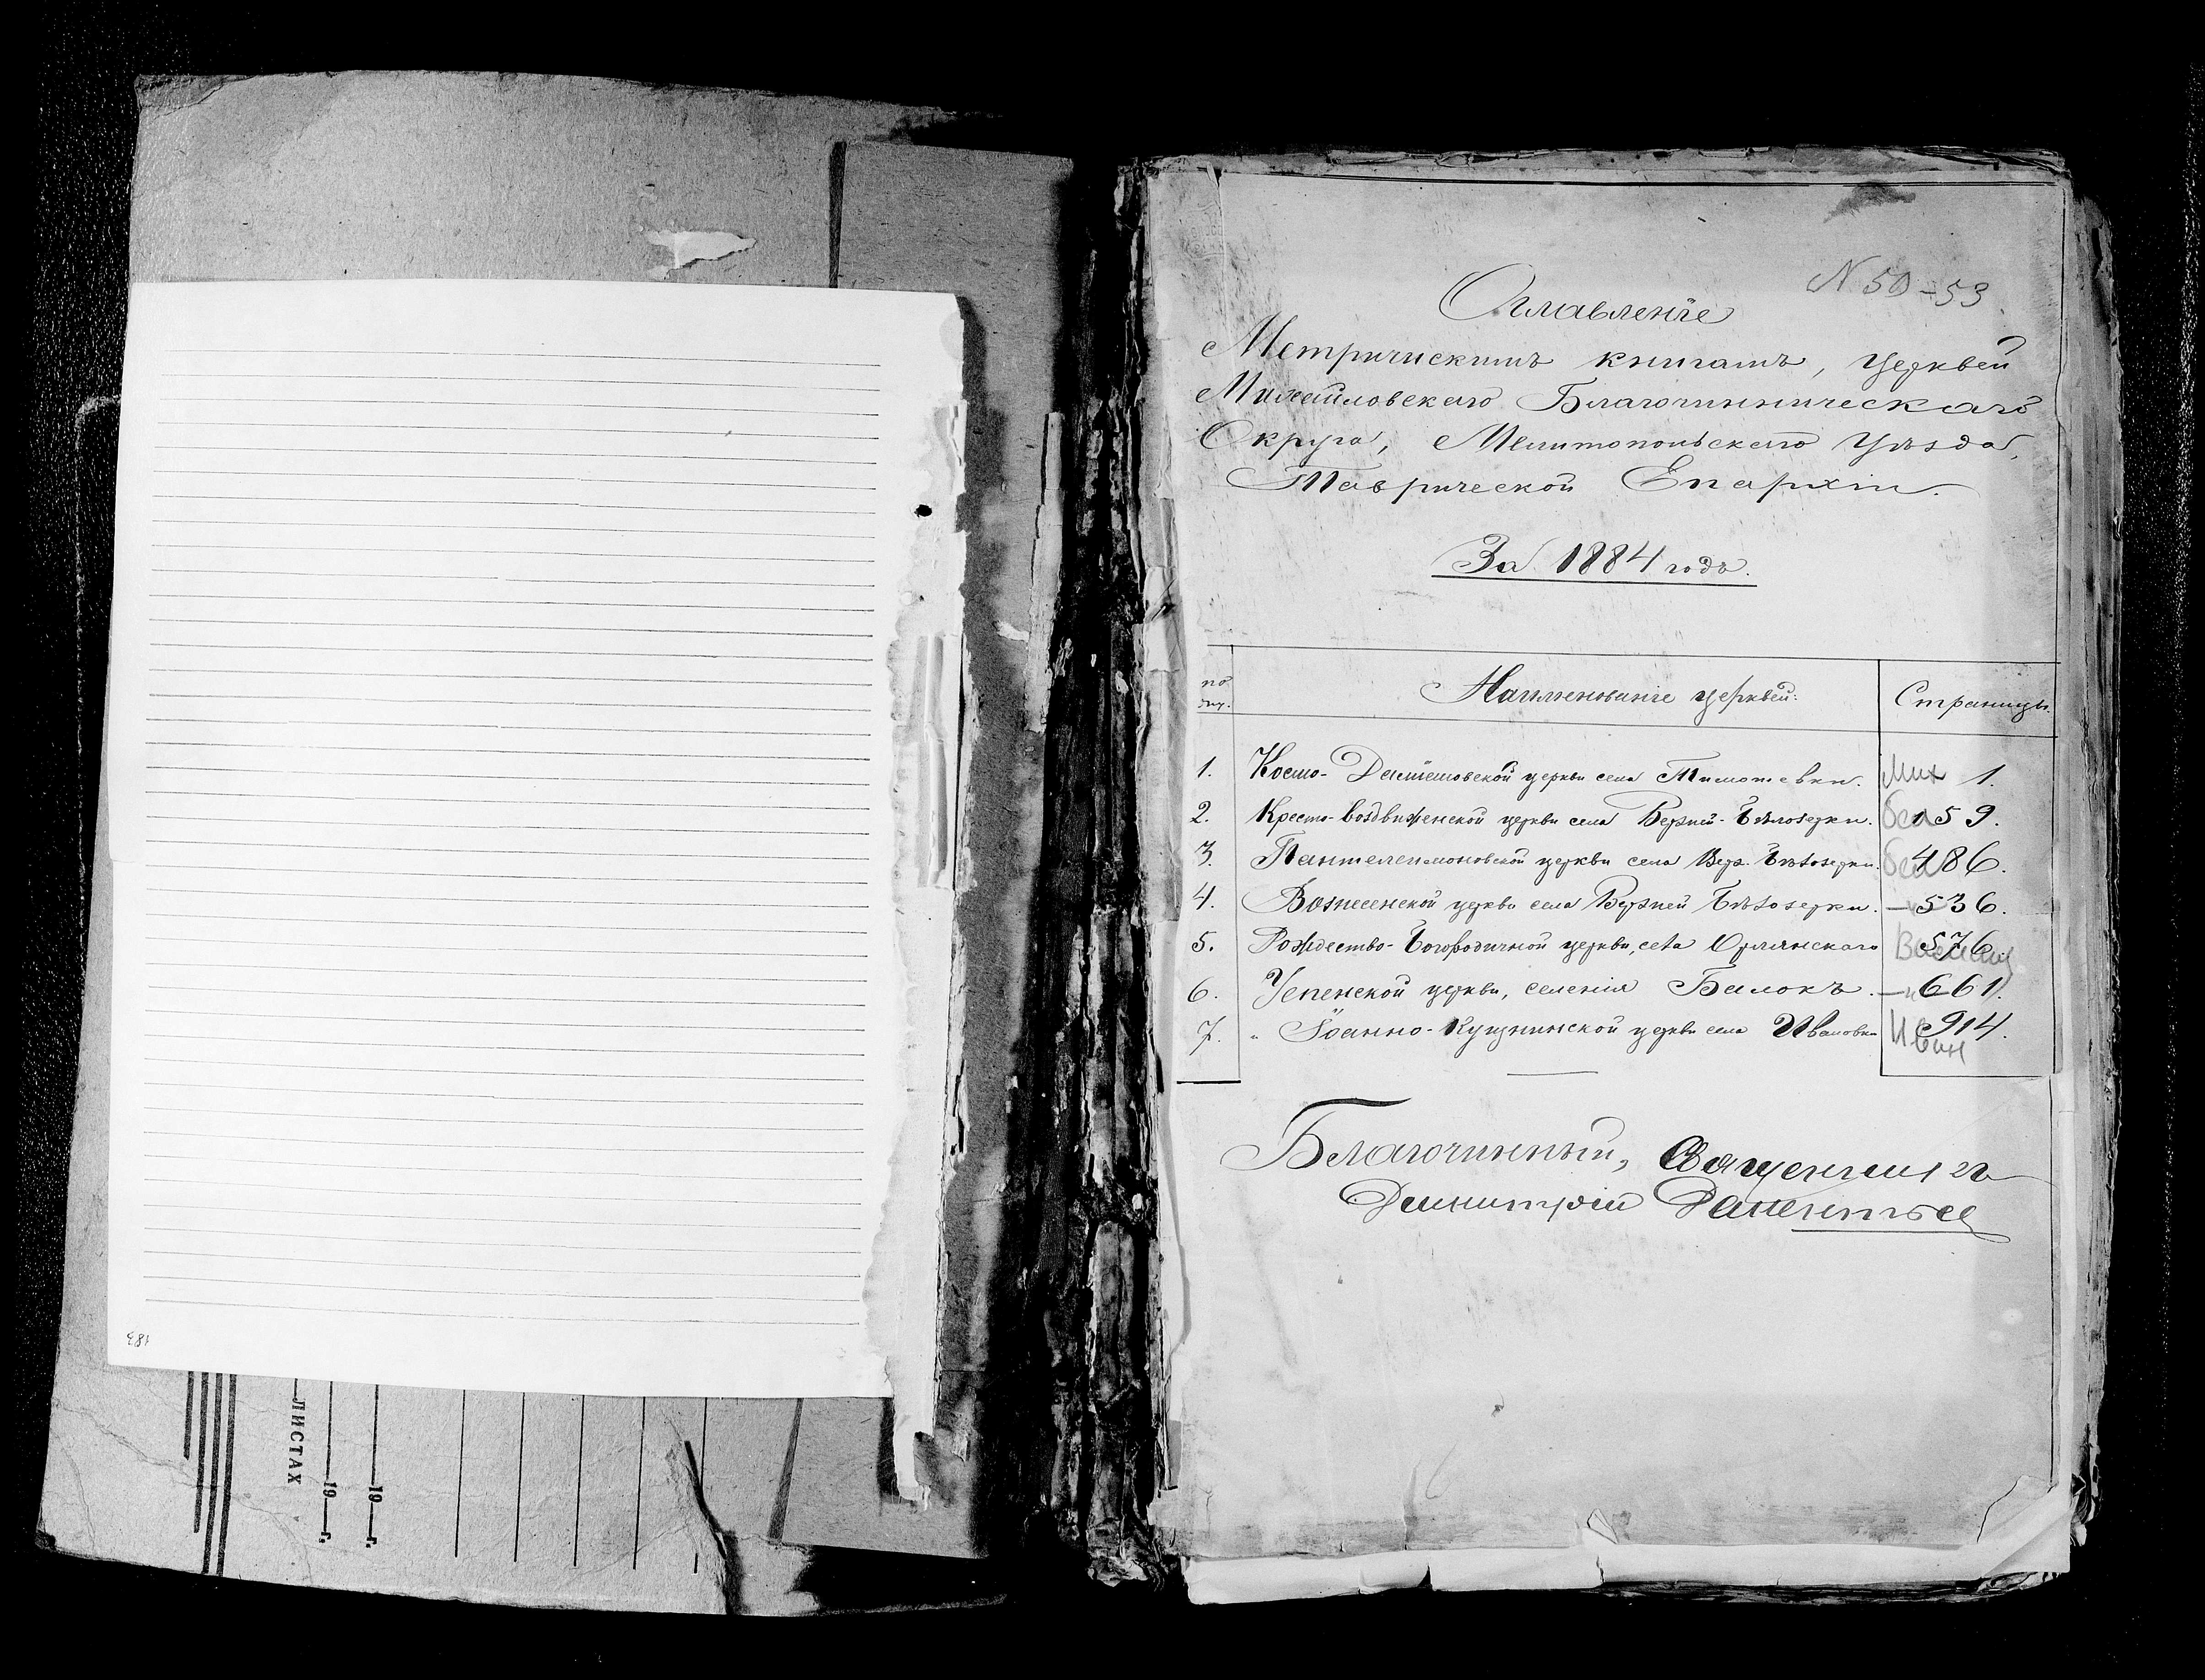 № 50-53
Оглавленіе
Метричискимъ книгамъ, церквей
Михайловскаго Благочинническаго
Округа, Мелитопольскаго Уѣзда,
Таврической Епархіи.
За 1884 годъ.
по Наименованіе церквей: Страницы.
1. Космо-Даміановской церкви села Тимошевки. Мих 1.
2. Кресто-Воздвиженской церкви села Верхней-Бѣлозерки. бел 159.
3. Пантелеимоновской церкви села Верх. Бѣлозерки. бел 486.
4. Вознесенской церкви села Верхней Бѣлозерки. — 536.
5. Рождество-Богородичной церкви, села Орлянскаго 576.
6. Успенской церкви, селенія Балокъ. —"— 661.
7. " Іоанно-Кущнинской церкви села Ивановки 914.
Иван
Благочинный, Священникъ
Димитрій
183
ЛИСТАХ
19 г.
19 г.